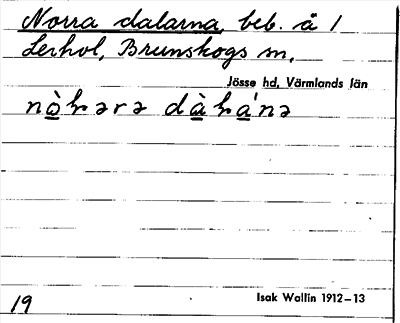 Norra dalarna, beb. å 1
Lerhol, Brunskogs sn,
Jösse hd, Värmlands län
19
Isak Wallin 1912–13